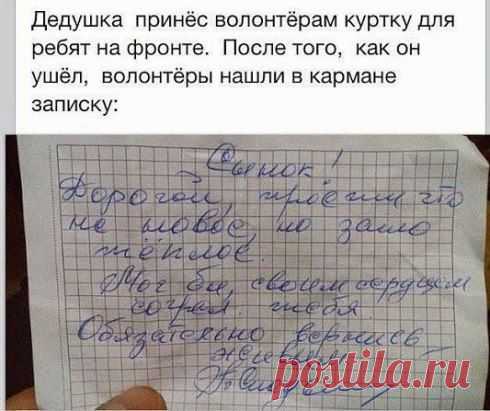 Дедушка принёс волонтёрам куртку для
ребят на фронте. После того, как он
ушёл, волонтёры нашли в кармане
записку:
Сынок!
Дорогой, прости что
не новое, но зато
тёплое.
Мог бы, своим сердцем
согрел тебя.
Обязательно вернись
живым
postila.ru